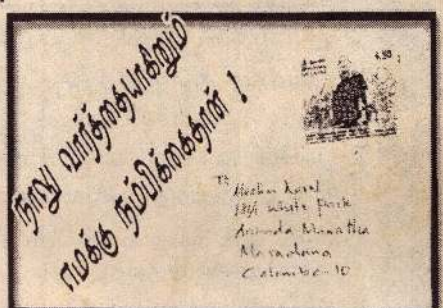 நாலு வார்த்தையாகினும்
எமக்கு நம்பிக்கைதான் !
4.50
To
White Park
Ananda Mawatha
Maradana
Colombo-10